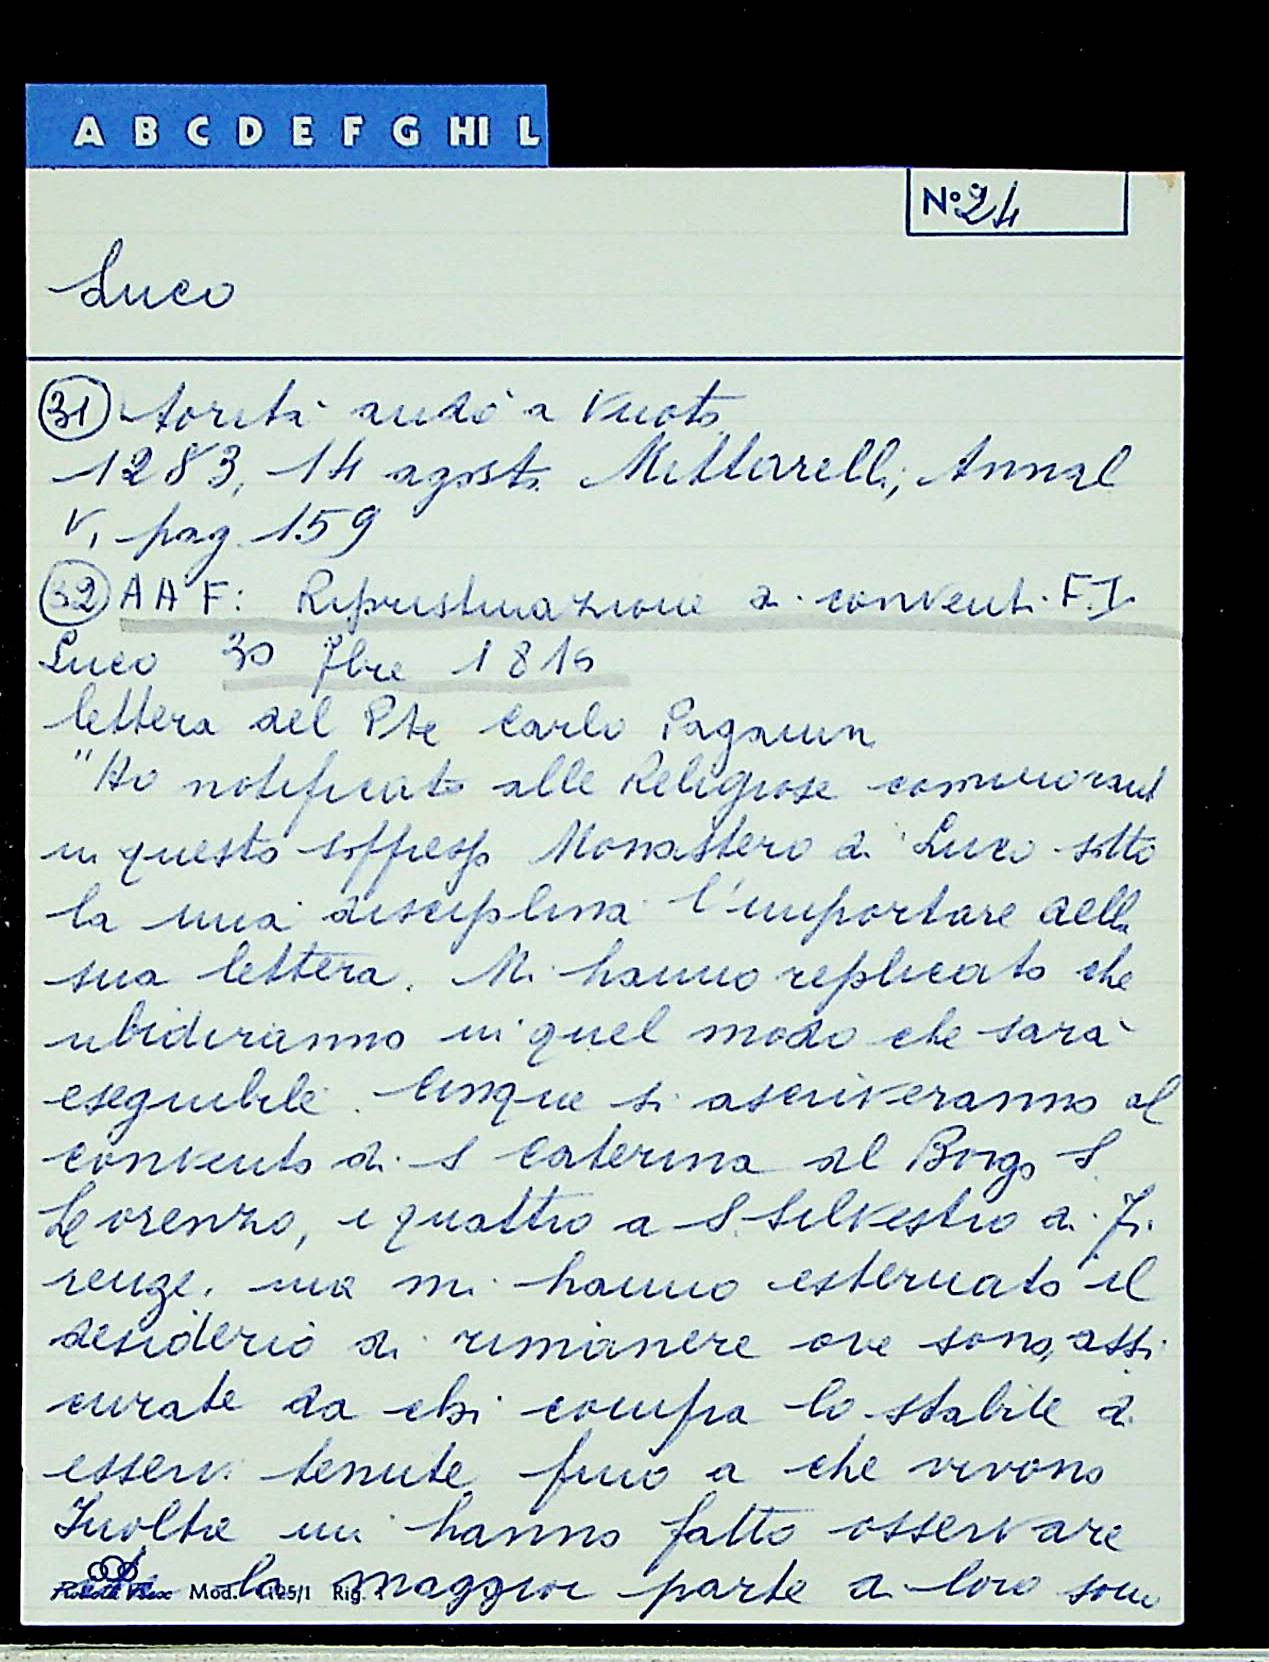 A B C D E F G HI L
N° 24
Luco
31 torità andò a vuoto
1283, 14 agosto Mittarelli, Annal
V, pag. 159
32 A A F: Ripristinazione di conventi F.I
Luco 30 7bre 1816
lettera del Pte Carlo Pagnini
"Ho notificato alle Religiose commorant
in questo soppresso Monastero di Luco sotto
la mia disciplina l'importare della
sua lettera. Mi hanno replicato che
ubidiranno in quel modo che sarà
eseguibile. Cinque si ascriveranno al
convento di S Caterina al Borgo S
Lorenzo, e quattro a S. Silvestro di Fi
renze. ma mi hanno esternato il
desiderio di rimanere ove sono, assi
curate da chi compra lo stabile di
esservi tenute fino a che vivono
Inoltre mi hanno fatto osservare
la maggior parte di loro sono
Mod. 125/1 Rig.